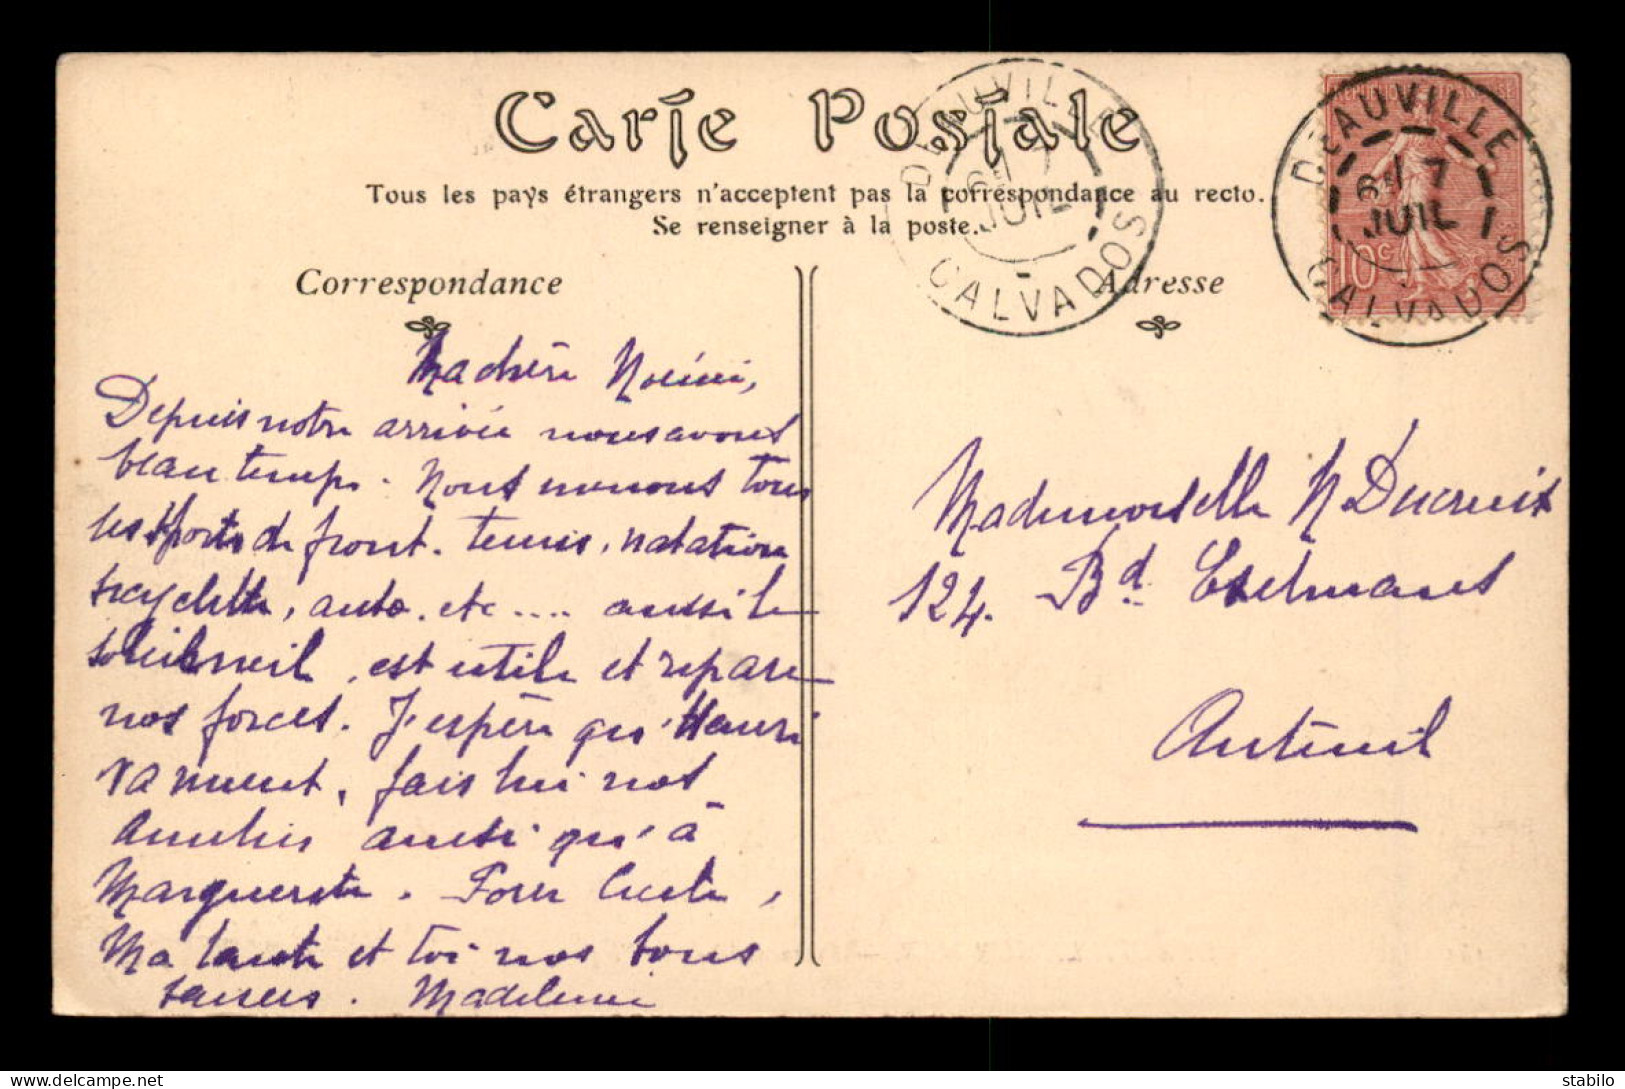 Carte Postale
Tous les pays étrangers n'acceptent pas la correspondance au recto.
Se renseigner à la poste.
Correspondance
Adresse
DEAUVILLE
6E 17
JUIL
CALVADOS
DEAUVILLE
6E 17
JUIL
CALVADOS
10c
Ma chère Noémi,
Depuis notre arrivée nous avons
beau temps. Nous menons tous
les sports de front. tennis, natation
bicyclette, auto. etc .... aussi le
sommeil, est utile et repare
nos forces. J'espère qu'Henri
va mieux, fais lui nos
amitiés ainsi qu'à
Marguerite. Pour
Ma tante et toi nos bons
baisers. Madeleine
Mademoiselle N Ducruix
124. Bd. Exelmans
Auteuil
stabilo